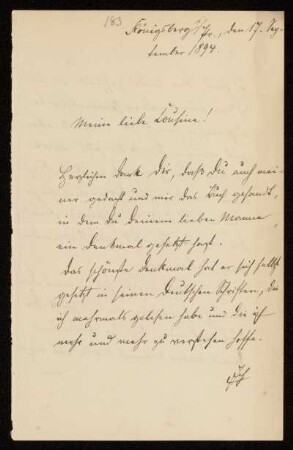 183
Königsberg i/Pr., den 17. Sep-
tember 1894.
Meine liebe Cousine!
Herzlichen Dank Dir, daß Du auch mei-
ner gedacht und mir das Buch gesandt,
in dem Du Deinem lieben Manne
ein Denkmal gesetzt hast.
Das schönste Denkmal hat er sich selbst
gesetzt in seinen Deutschen Schriften, die
ich mehrmals gelesen habe und die ich
mehr und mehr zu verstehen hoffe.
Ich